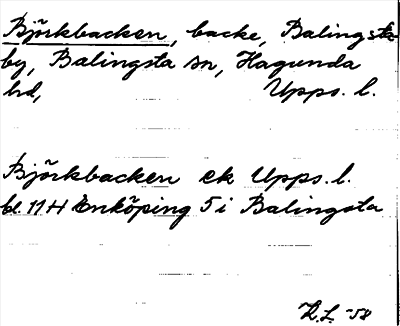 Björkbacken, backe, Balingsta
by, Balingsta sn, Hagunda
hd, Upps. l.
Björkbacken ek Upps. l.
bl. 11 H Enköping 5 i Balingsta
H.L. -58